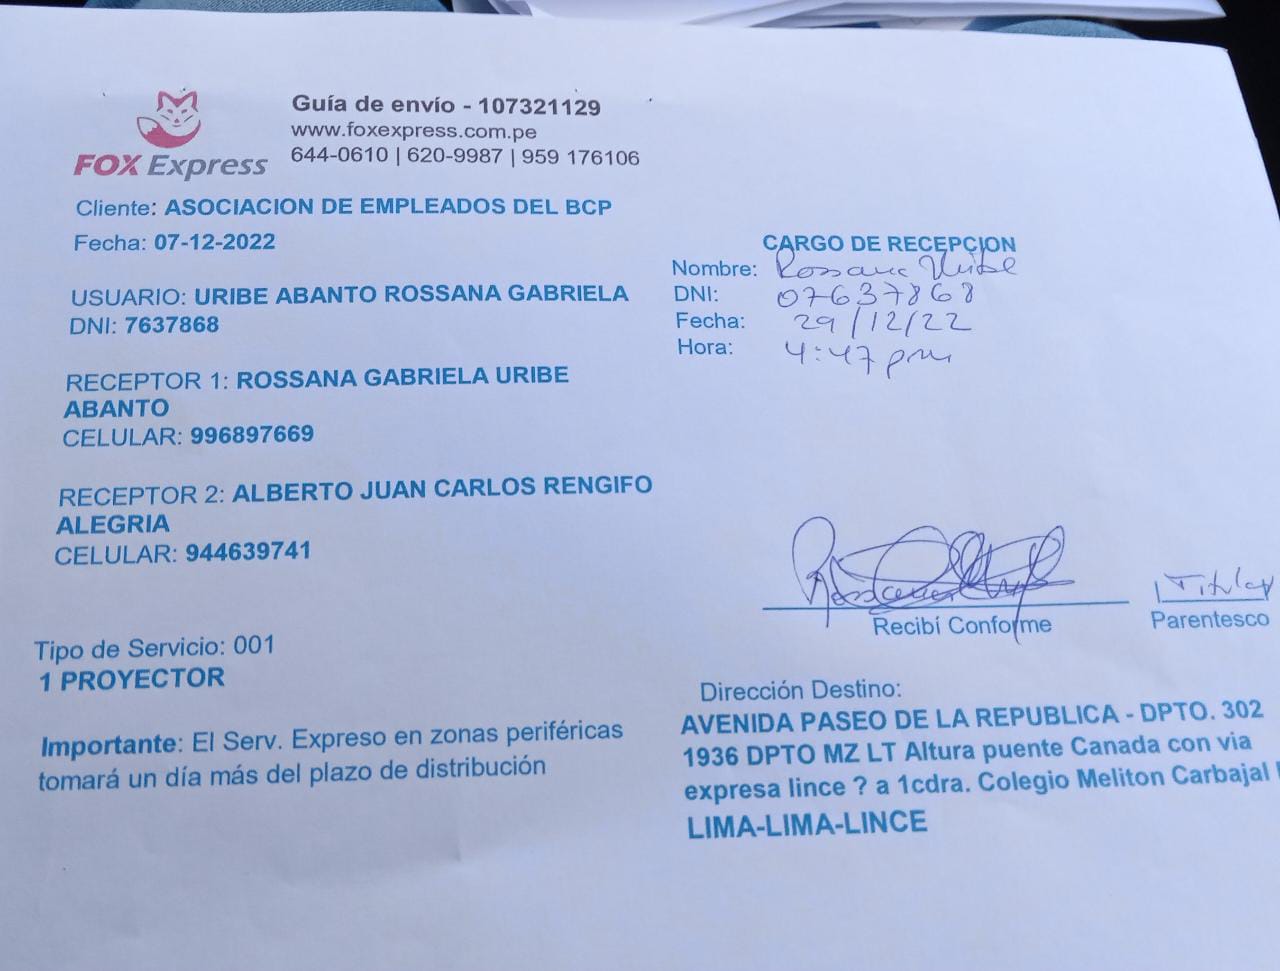 FOX Express
Guía de envío - 107321129
www.foxexpress.com.pe
644-0610 | 620-9987 | 959 176106
Cliente: ASOCIACION DE EMPLEADOS DEL BCP
Fecha: 07-12-2022
USUARIO: URIBE ABANTO ROSSANA GABRIELA
DNI: 7637868
RECEPTOR 1: ROSSANA GABRIELA URIBE
ABANTO
CELULAR: 996897669
RECEPTOR 2: ALBERTO JUAN CARLOS RENGIFO
ALEGRIA
CELULAR: 944639741
Tipo de Servicio: 001
1 PROYECTOR
Importante: El Serv. Expreso en zonas periféricas
tomará un día más del plazo de distribución
CARGO DE RECEPCION
Nombre: Rossana Uribe
DNI: 07637868
Fecha: 29/12/22
Hora: 4:47 pm
Recibí Conforme
Titular
Parentesco
Dirección Destino:
AVENIDA PASEO DE LA REPUBLICA - DPTO. 302
1936 DPTO MZ LT Altura puente Canada con via
expresa lince ? a 1cdra. Colegio Meliton Carbajal
LIMA-LIMA-LINCE